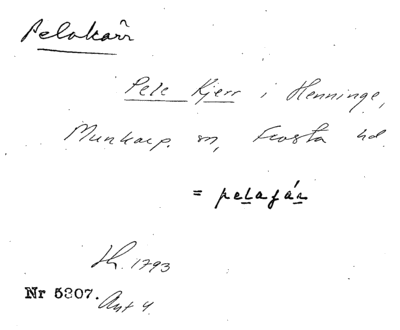 Pelakärr
Pele Kjerr i Henninge,
Munkarp. sn, Frosta hd.
= pelašár
Sk. 1793
Nr 5307.
Ant 4.